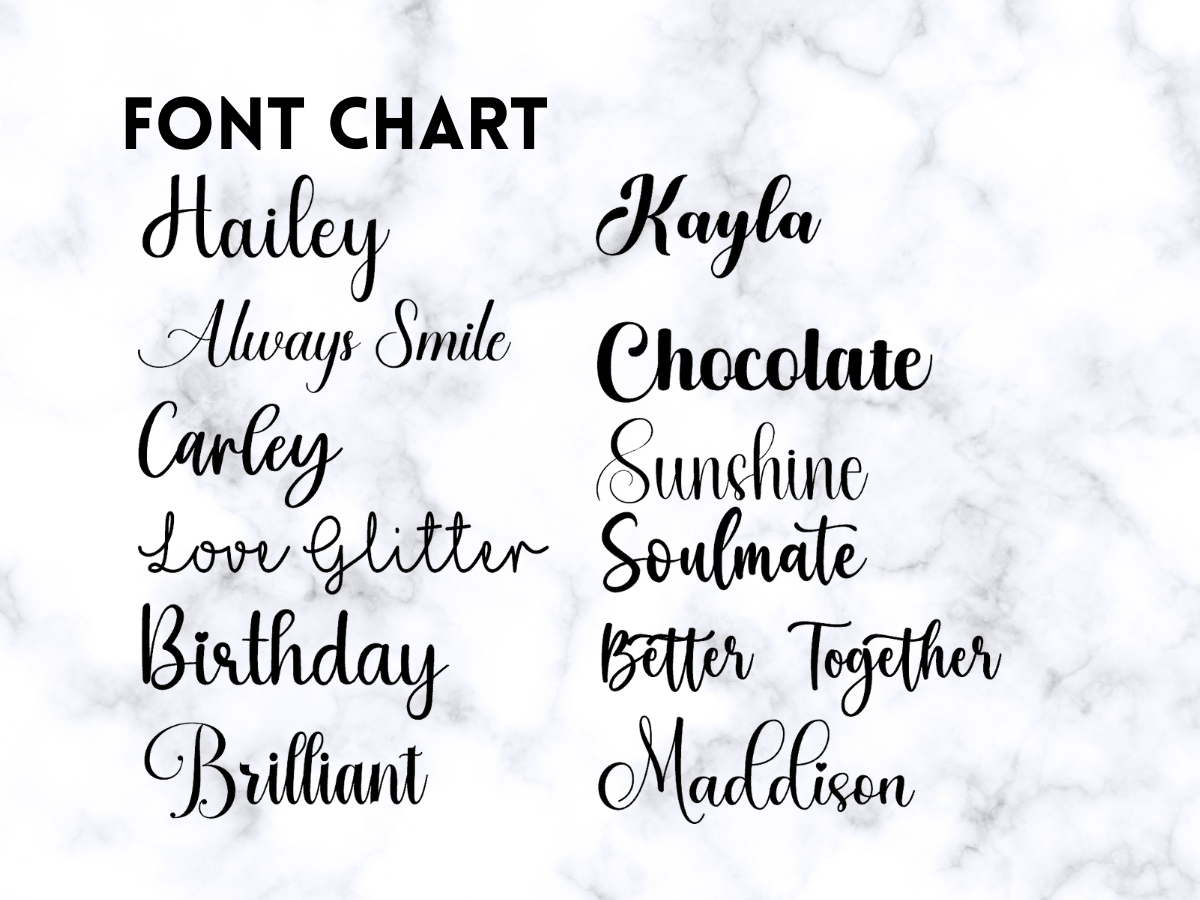 FONT CHART
Hailey
Always Smile
Carley
Love Glitter
Birthday
Brilliant
Kayla
Chocolate
Sunshine
Soulmate
Better Together
Maddison